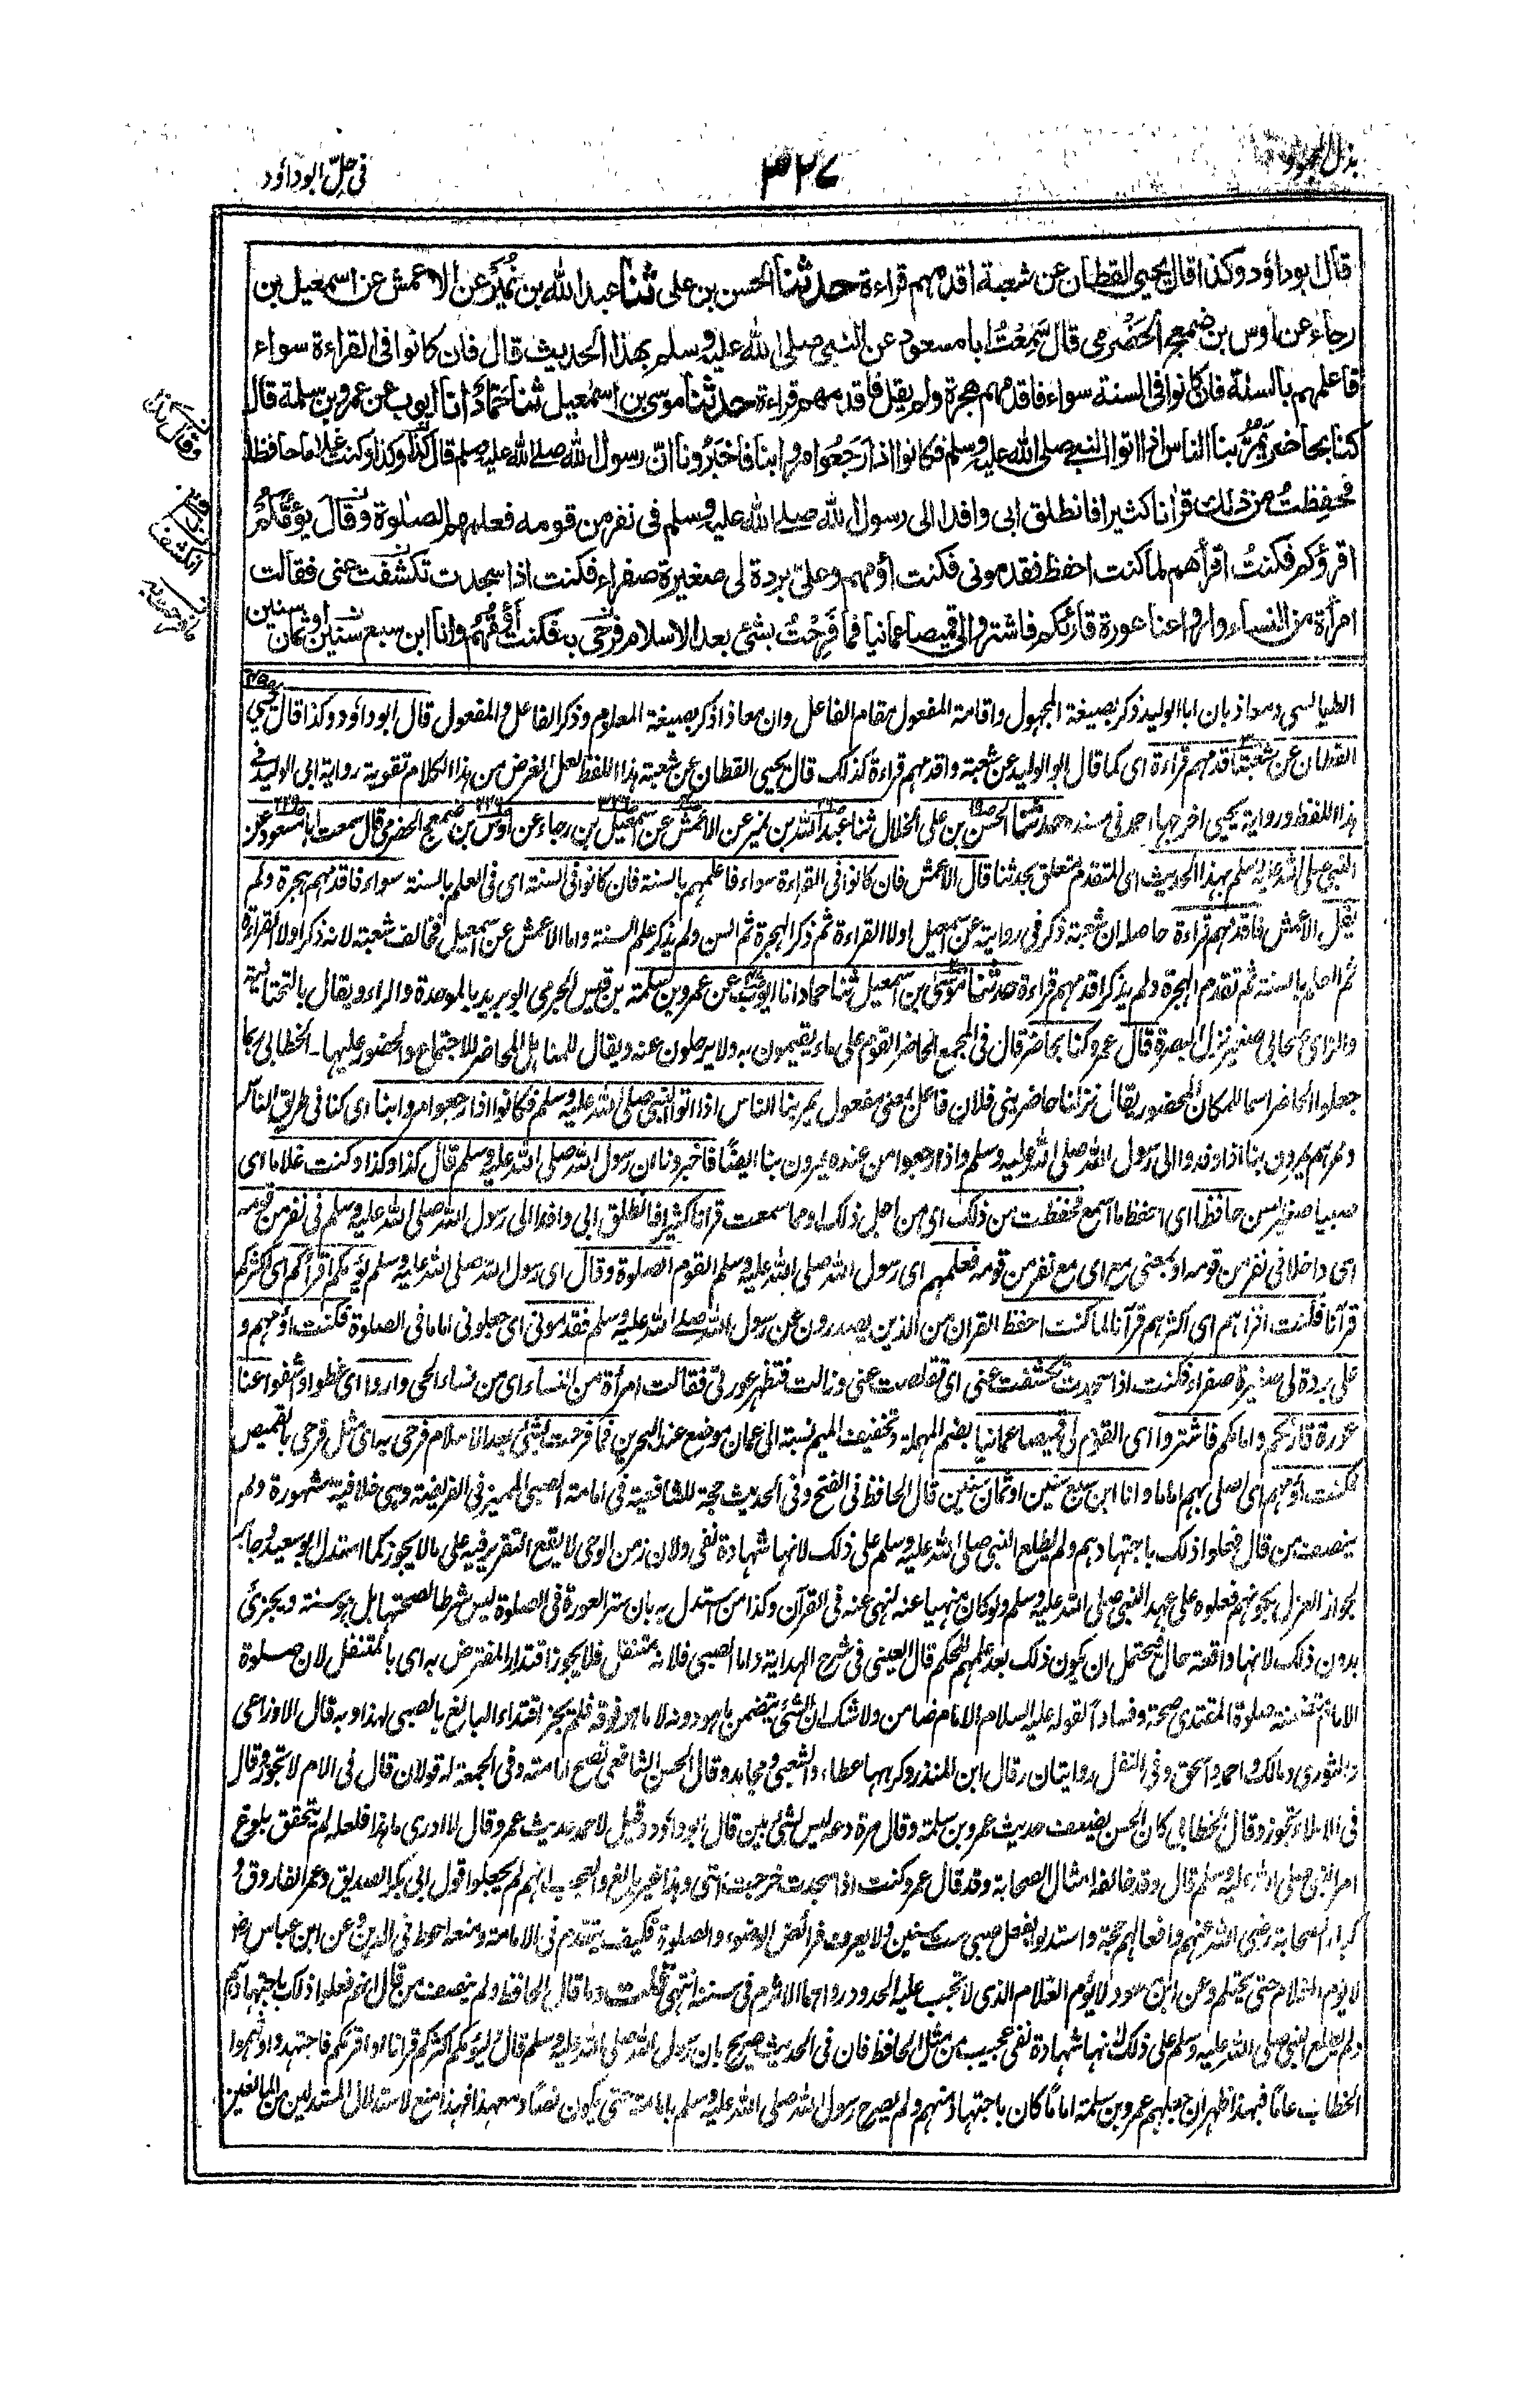 بذل المجهود
٣٢٧
فی حلّ ابوداؤد
قال ابوداؤد وكذا قال يحيى القطان عن شعبة اقدمهم قراءة حدثنا الحسن بن على ثنا عبد الله بن نُمَيْر عن الاعمش عن اسمعيل بن
رجاء عن اوس بن ضمعج الحَضْرمى قال سَمِعْتُ ابا مسعود عن النبى صلى الله عليه وسلم بهذا الحديث قال فان كانوا فى القراءة سواء
فاعلمهم بالسنة فان كانوا فى السنة سواء فاقدمهم هجرة ولم يقل فاقدمهم قراءة حدثنا موسى بن اسمعيل ثنا حمّاد انا ايوب عن عمرو بن سلمة قال
كنا بحاضر يَمُرُّ بنا الناس اذا اتوا النبى صلى الله عليه وسلم فكانوا اذا رَجَعُوا مروا بنا فاخبَرُونا انّ رسول الله صلى الله عليه وسلم قال كذا وكذا وكنت غلاما حافظا
فحفِظتُ من ذلك قرانا كثيرا فانطلق ابى وافدا الى رسول الله صلى الله عليه وسلم فى نفر من قومه فعلمهم الصلوة وقال يؤمُّكم
اقرؤكم فكنتُ اقرأهم لما كنت احفظ فقدمونى فكنت أؤمهم وعلىّ بردة لى صغيرة صفراء فكنت اذا سجدت تكشفت عنى فقالت
امرأة من النساء واروا عنا عورة قارئكم فاشتروا لى قميصا عمانيا فما فَرِحْتُ بشئ بعد الاسلام فرحى به فكنت أؤمُّهم وانا ابن سبع سنين او ثمان سنين
الطيالسى ومعاذ بان ابا الوليد ذكر بصيغة المجهول واقامة المفعول مقام الفاعل وان معاذا ذكر بصيغة المعلوم وذكر الفاعل والمفعول قال ابوداؤد وكذا قال يحيى
القطان عن شعبة اقدمهم قراءة اى كما قال ابو الوليد عن شعبة واقدمهم قراءة كذلك قال يحيى القطان عن شعبة هذا اللفظ لعل الغرض من هذا الكلام تقوية رواية ابى الوليد فى
هذا اللفظ ورواية يحيى اخرجها احمد فى مسنده حدثنا الحسن بن على الخلال ثنا عبد الله بن نمير عن الاعمش عن اسمعيل بن رجاء عن اوس بن ضمعج الحضرمى قال سمعت ابا مسعود عن
النبى صلى الله عليه وسلم بهذا الحديث اى المتقدم متعلق بحدثنا قال الاعمش فان كانوا فى القراءة سواء فاعلمهم بالسنة فان كانوا فى السنة اى فى العلم بالسنة سواء فاقدمهم هجرة ولم
يقل الاعمش فاقدمهم قراءة حاصله ان شعبة ذكر فى روايته عن اسمعيل اولا القراءة ثم ذكر الهجرة ثم السن ولم يذكر علم السنة واما الاعمش عن اسمعيل فخالف شعبة لانه ذكر اولا القراءة
ثم العلم بالسنة ثم تقدم الهجرة ولم يذكر اقدمهم قراءة حدثنا موسى بن اسمعيل ثنا حماد انا ايوب عن عمرو بن سلمة بن قيس الجرمى ابو بريد بالموحدة والراء ويقال بالتحتانية
والزاى صحابى صغير نزل البصرة قال عمرو كنا بحاضر قال فى المجمع الحاضر القوم على ماء يقيمون به ولا يرحلون عنه ويقال للمناهل المحاضر للاجتماع والحضور عليها - الخطابى ربما
جعلوا الحاضر اسما للمكان المحضور يقال نزلنا حاضر بنى فلان فاعل بمعنى مفعول يمر بنا الناس اذا اتوا النبى صلى الله عليه وسلم فكانوا اذا رجعوا مروا بنا اى كنا فى طريق الناس
وممرهم يمرون بنا اذا وفدوا الى رسول الله صلى الله عليه وسلم واذا رجعوا من عنده يمرون بنا ايضًا فاخبرونا ان رسول الله صلى الله عليه وسلم قال كذا وكذا وكنت غلاما اى
صبيا صغير السن حافظا اى احفظ ما اسمع فحفظت من ذلك اى من اجل ذلك او مما سمعت قرانا كثيرا فانطلق ابى وافدا الى رسول الله صلى الله عليه وسلم فى نفر من قومه
اى داخلا فى نفر من قومه او بمعنى مع اى مع نفر من قومه فعلمهم اى رسول الله صلى الله عليه وسلم القوم الصلوة وقال اى رسول الله صلى الله عليه وسلم يؤمكم اقرأكم اى اكثركم
قرآنا فكنت اقرأهم اى اكثرهم قرآنا لما كنت احفظ القران من الذين يصدرون عن رسول الله صلى الله عليه وسلم فقدمونى اى جعلونى اماما فى الصلوة فكنت اؤمهم و
على بردة لى صغيرة صفراء فكنت اذا سجدت تكشفت عنى اى تقلصت عنى وزالت فتظهر عورتى فقالت امرأة من النساء اى من نساء الحى واروا اى غطوا واخفوا عنا
عورة قارئكم وامامكم فاشتروا اى القوم لى قميصا عمانيا بضم المهملة وتخفيف الميم نسبة الى عمان موضع عند البحرين فما فرحت بشئ بعد الاسلام فرحى به اى مثل فرحى بالقميص
فكنت اؤمهم اى اصلى بهم اماما وانا ابن سبع سنين او ثمان سنين قال الحافظ فى الفتح وفى الحديث حجة للشافعية فى امامة الصبى المميز فى الفريضة وهى خلافية مشهورة ولم
ينصف من قال فعلوا ذلك باجتهادهم ولم يطلع النبى صلى الله عليه وسلم على ذلك لانها شهادة نفى ولان زمن الوحى لا يقع التقرير فيه على ما لا يجوز كما استدل ابو سعيد وجابر
لجواز العزل بكونهم فعلوه على عهد النبى صلى الله عليه وسلم ولو كان منهيا عنه لنهى عنه فى القرآن وكذا من استدل به بان ستر العورة فى الصلوة ليس شرطا لصحتها بل هو سنة ويجزئ
بدون ذلك لانها واقعة حال فيحتمل ان يكون ذلك بعد علمهم بالحكم قال العينى فى شرح الهداية واما الصبى فلانه متنفل فلا يجوز اقتداء المفترض به اى بالمتنفل لان صلوة
الامام تتضمن صلوة المقتدى صحة وفسادًا لقوله عليه السلام الامام ضامن ولا شك ان الشئ يتضمن ما هو دونه لا ما هو فوقه فلم يجز اقتداء البالغ بالصبى لهذا وبه قال الاوزاعى
والثورى ومالك واحمد واسحق وفى النفل روايتان وقال ابن المنذر وكرهها عطاء والشعبى ومجاهد وقال الحسن الشافعى تصح امامته وفى الجمعة له قولان قال فى الام لا تجوز وقال
فى الاملاء تجوز وقال الخطابى كان الحسن يضعف حديث عمرو بن سلمة وقال مرة دعه ليس بشئ بين قال ابوداؤد وقيل لاحمد حديث عمرو قال لا ادرى ما هذا فلعله لم يتحقق بلوغ
امر النبى صلى الله عليه وسلم قال وقد خالفه امثال الصحابة وقد قال عمرو كنت اذا سجدت خرجت استى وهذا غير بالغ والعجب انهم لم يجعلوا قول ابى بكر الصديق وعمر الفاروق و
كبراء الصحابة رضى الله عنهم وافعالهم حجة واستدلوا بفعل صبى ست سنين ولا يعرف فرائض الوضوء والصلوة فكيف يتقدم فى الامامة ومنعه احوط فى الدين وعن ابن عباس رض
لا يؤم الغلام حتى يحتلم وعن ابن مسعود لا يؤم الغلام الذى لا تجب عليه الحدود رواهما الاثرم فى سننه انتهى قلت وما قال الحافظ ولم ينصف من قال انهم فعلوا ذلك باجتهادهم
ولم يطلع النبى صلى الله عليه وسلم على ذلك لانها شهادة نفى عجيب من مثل الحافظ فان فى الحديث صريح بان رسول الله صلى الله عليه وسلم قال ليؤمكم اكثركم قرانا او اقرئكم فاجتهدوا وفهموا
الخطاب عاما فبهذا ظهر ان جعلهم عمرو بن سلمة اماما كان باجتهاد منهم ولم يصرح رسول الله صلى الله عليه وسلم بامامته حتى يكون نصًا ومعهذا فهذا منع لاستدلال المستدلين من المانعين
انكشفت